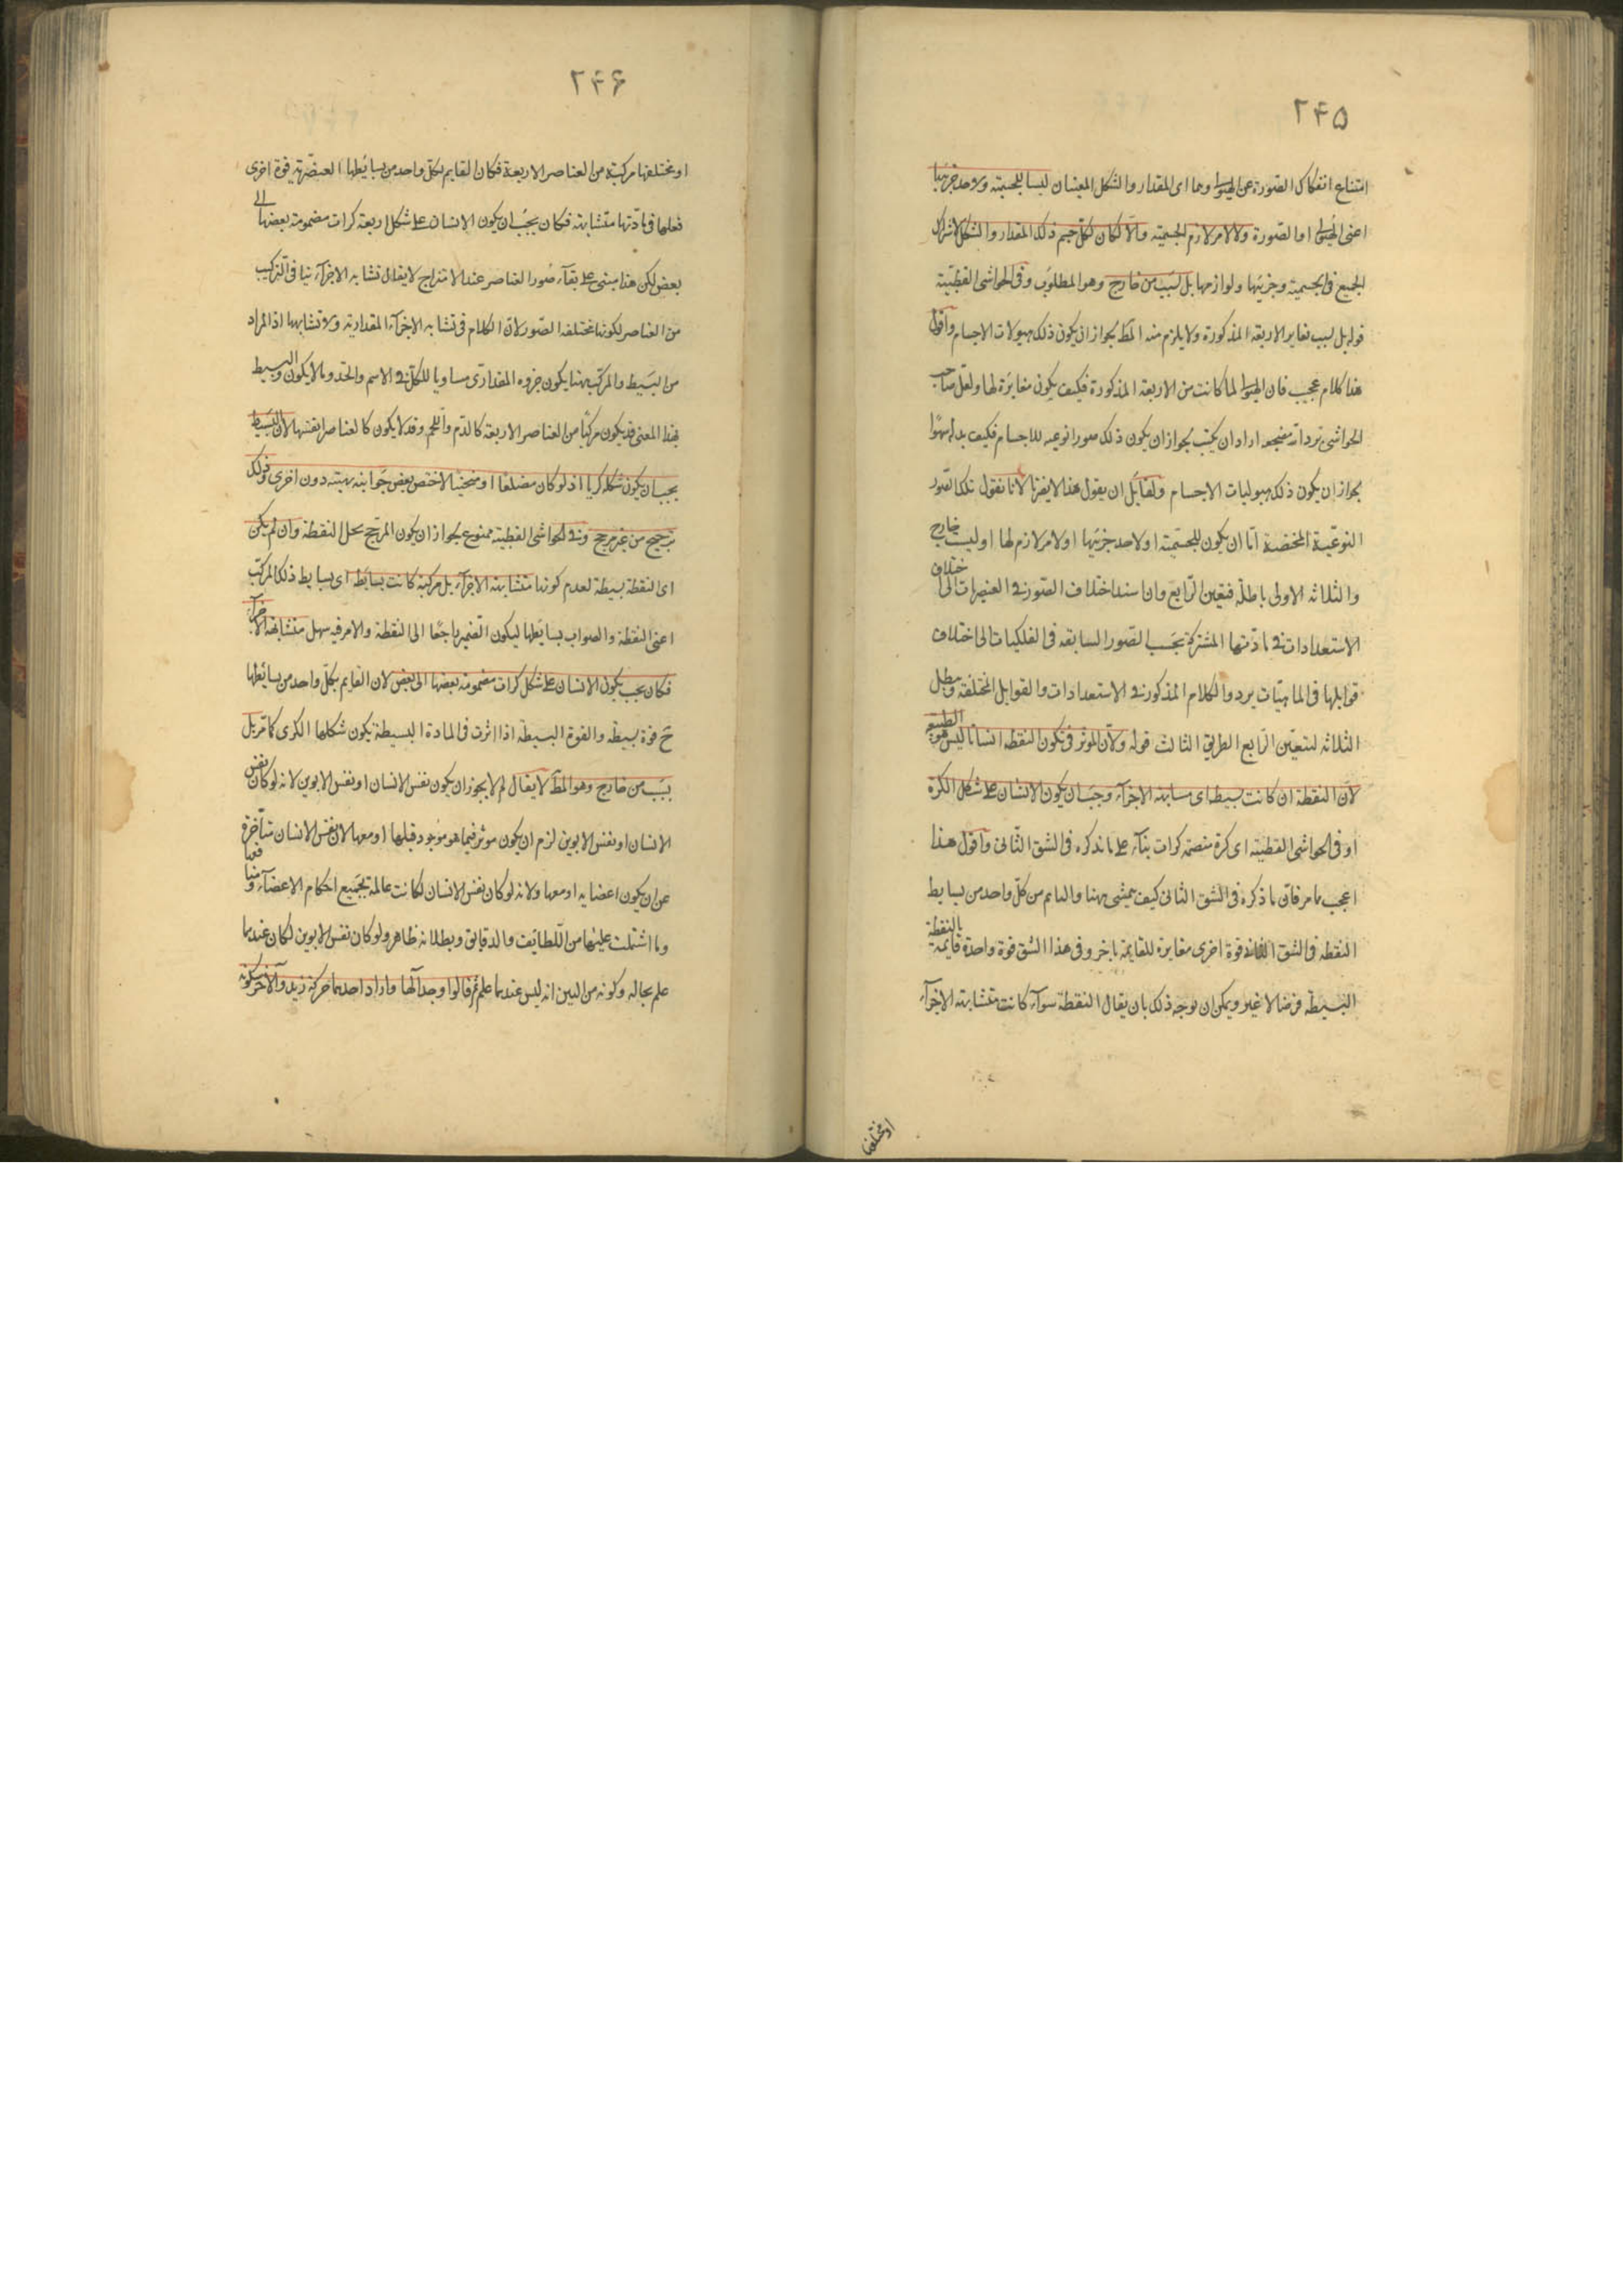 ۲۴۵
امتناع انفكاك الصورة عن الهيولى وهما اى المقدار والشكل المعينان ليسا للجسمية ولاحد جزئيها
اعنى الهيولى او الصورة ولا لامر لازم الجسمية والا لكان لكل جسم ذلك المقدار والشكل لاشتراك
الجميع فى الجسمية وجزئيها ولوازمها بل لسبب من خارج وهو المطلوب وفى الحواشى القطبية
قوله بل لسبب تغاير الاربعة المذكورة ولا يلزم منه المط لجواز ان يكون ذلك هيولات الاجسام واقول
هذا كلام عجيب فان الهيولى لما كانت من الاربعة المذكورة فكيف يكون مغايرة لها ولعل صاحب
الحواشى اراد ان يكتب لجواز ان يكون ذلك صورا نوعيه للاجسام فكتب بدله سهوا
لجواز ان يكون ذلك هيوليات الاجسام ولقايل ان يقول هذا لا يضرنا لانا نقول تلك الصور
النوعية المخصصة اما ان يكون للجسمية او لاحد جزئيها او لامر لازم لها او لسبب خارج
والثلاثه الاولى باطلة فتعين الرابع وان سند اختلاف الصور فى العنصرات الى اختلاف
الاستعدادات فى مادتها المشتركة بحسب الصور السابقه فى الفلكيات الى اختلاف
قوابلها فى الماهيات يرد والكلام المذكور فى الاستعدادات والقوابل المختلفة ويبطل
الثلاثه لتعين الرابع الطريق الثالث قوله ولان الموثر فى تكون النطفه انسانا ليس هو الطبيع
لان النطفة ان كانت بسيط اى متشابهة الاجزآء وجب ان يكون الانسان على شكل الكرة
او فى الحواشى القطبيه اى كرة منضمة كرات بنآء على ما نذكره فى الشق الثانى واقول هذا
اعجب مما مر فان ما ذكره فى الشق الثانى كيف يمشى ههنا والدايم من كل واحد من بسايط
النطفه فى الشق الثانى قوة اخرى مغايرة للقايمة باخر وفى هذا الشق قوة واحدة قايمة بالنطفة
البسيطة فرضا لا غير ويمكن ان يوجه ذلك بان يقال النطفة سوآء كانت متشابهة الاجزآء
او مختلفها
۲۴۶
او مختلفها مركبة من العناصر الاربعة فكان القايم بكل واحد من بسايطها العنصرية قوة اخرى
فعلها فى مادتها متشابهة فكان يجب ان يكون الانسان على شكل اربعة كرات مضمومة بعضها الى
بعض لكن هذا مبنى على بقآء صور العناصر عند الامتزاج لا يقال تشابه الاجزآء ينافى التركيب
من العناصر لكونها مختلفة الصور لان الكلام فى تشابه الاجزآء المقدارية ولا تشابهها اذ المراد
من البسيط والمركب ههنا يكون جزوه المقدارى مساويا للكل فى الاسم والحد وما لا يكون والبسيط
بهذا المعنى قد يكون مركبا من العناصر الاربعة كالدم واللحم وقد لا يكون كالعناصر انفسها لان البسيط
يجب ان يكون شكله كريا اذ لو كان مضلعا او منحنيا لاختص بعض جوانبه بهيئة دون اخرى وذلك
ترجيح من غير مرجح وفى الحواشى القطبية ممنوع لجواز ان يكون المرجح محل النطفة وان لم يكن
اى النطفة بسيطة لعدم كونها متشابهة الاجزآء بل مركبة كانت بسايط اى بسايط ذلك المركب
اعنى النطفة والصواب بسايطها ليكون الضمير راجعا الى النطفة والامر فيه سهل متشابهة الاجزآء
فكان يجب يكون الانسان على شكل كرات مضمومة بعضها الى بعض لان القايم بكل واحد من بسائطها
ح قوة بسيطة والقوة البسيطة اذا اثرت فى المادة البسيطة يكون شكلها الكرى كما مر بل
بسبب من خارج وهو المط لا يقال لم لا يجوز ان يكون نفس الانسان او نفس الابوين لانه لو كان نفس
الانسان او نفس الابوين لزم ان يكون موثر فيما هو موجود قبلها او معها لان نفس الانسان متأخرة
عن ان يكون اعضايه او معها ولانه لو كان نفس الانسان لكانت عالمة بجميع احكام الاعضآء
وما اشتملت عليها من اللطايف والدقايق وبطلانه ظاهر ولو كان نفس الابوين لكان عندهما
علم بحاله وكونه من البين انه ليس عندهما علم ثم قالوا وجد آلها واراد احدهما حركة زيد والآخر سكونه